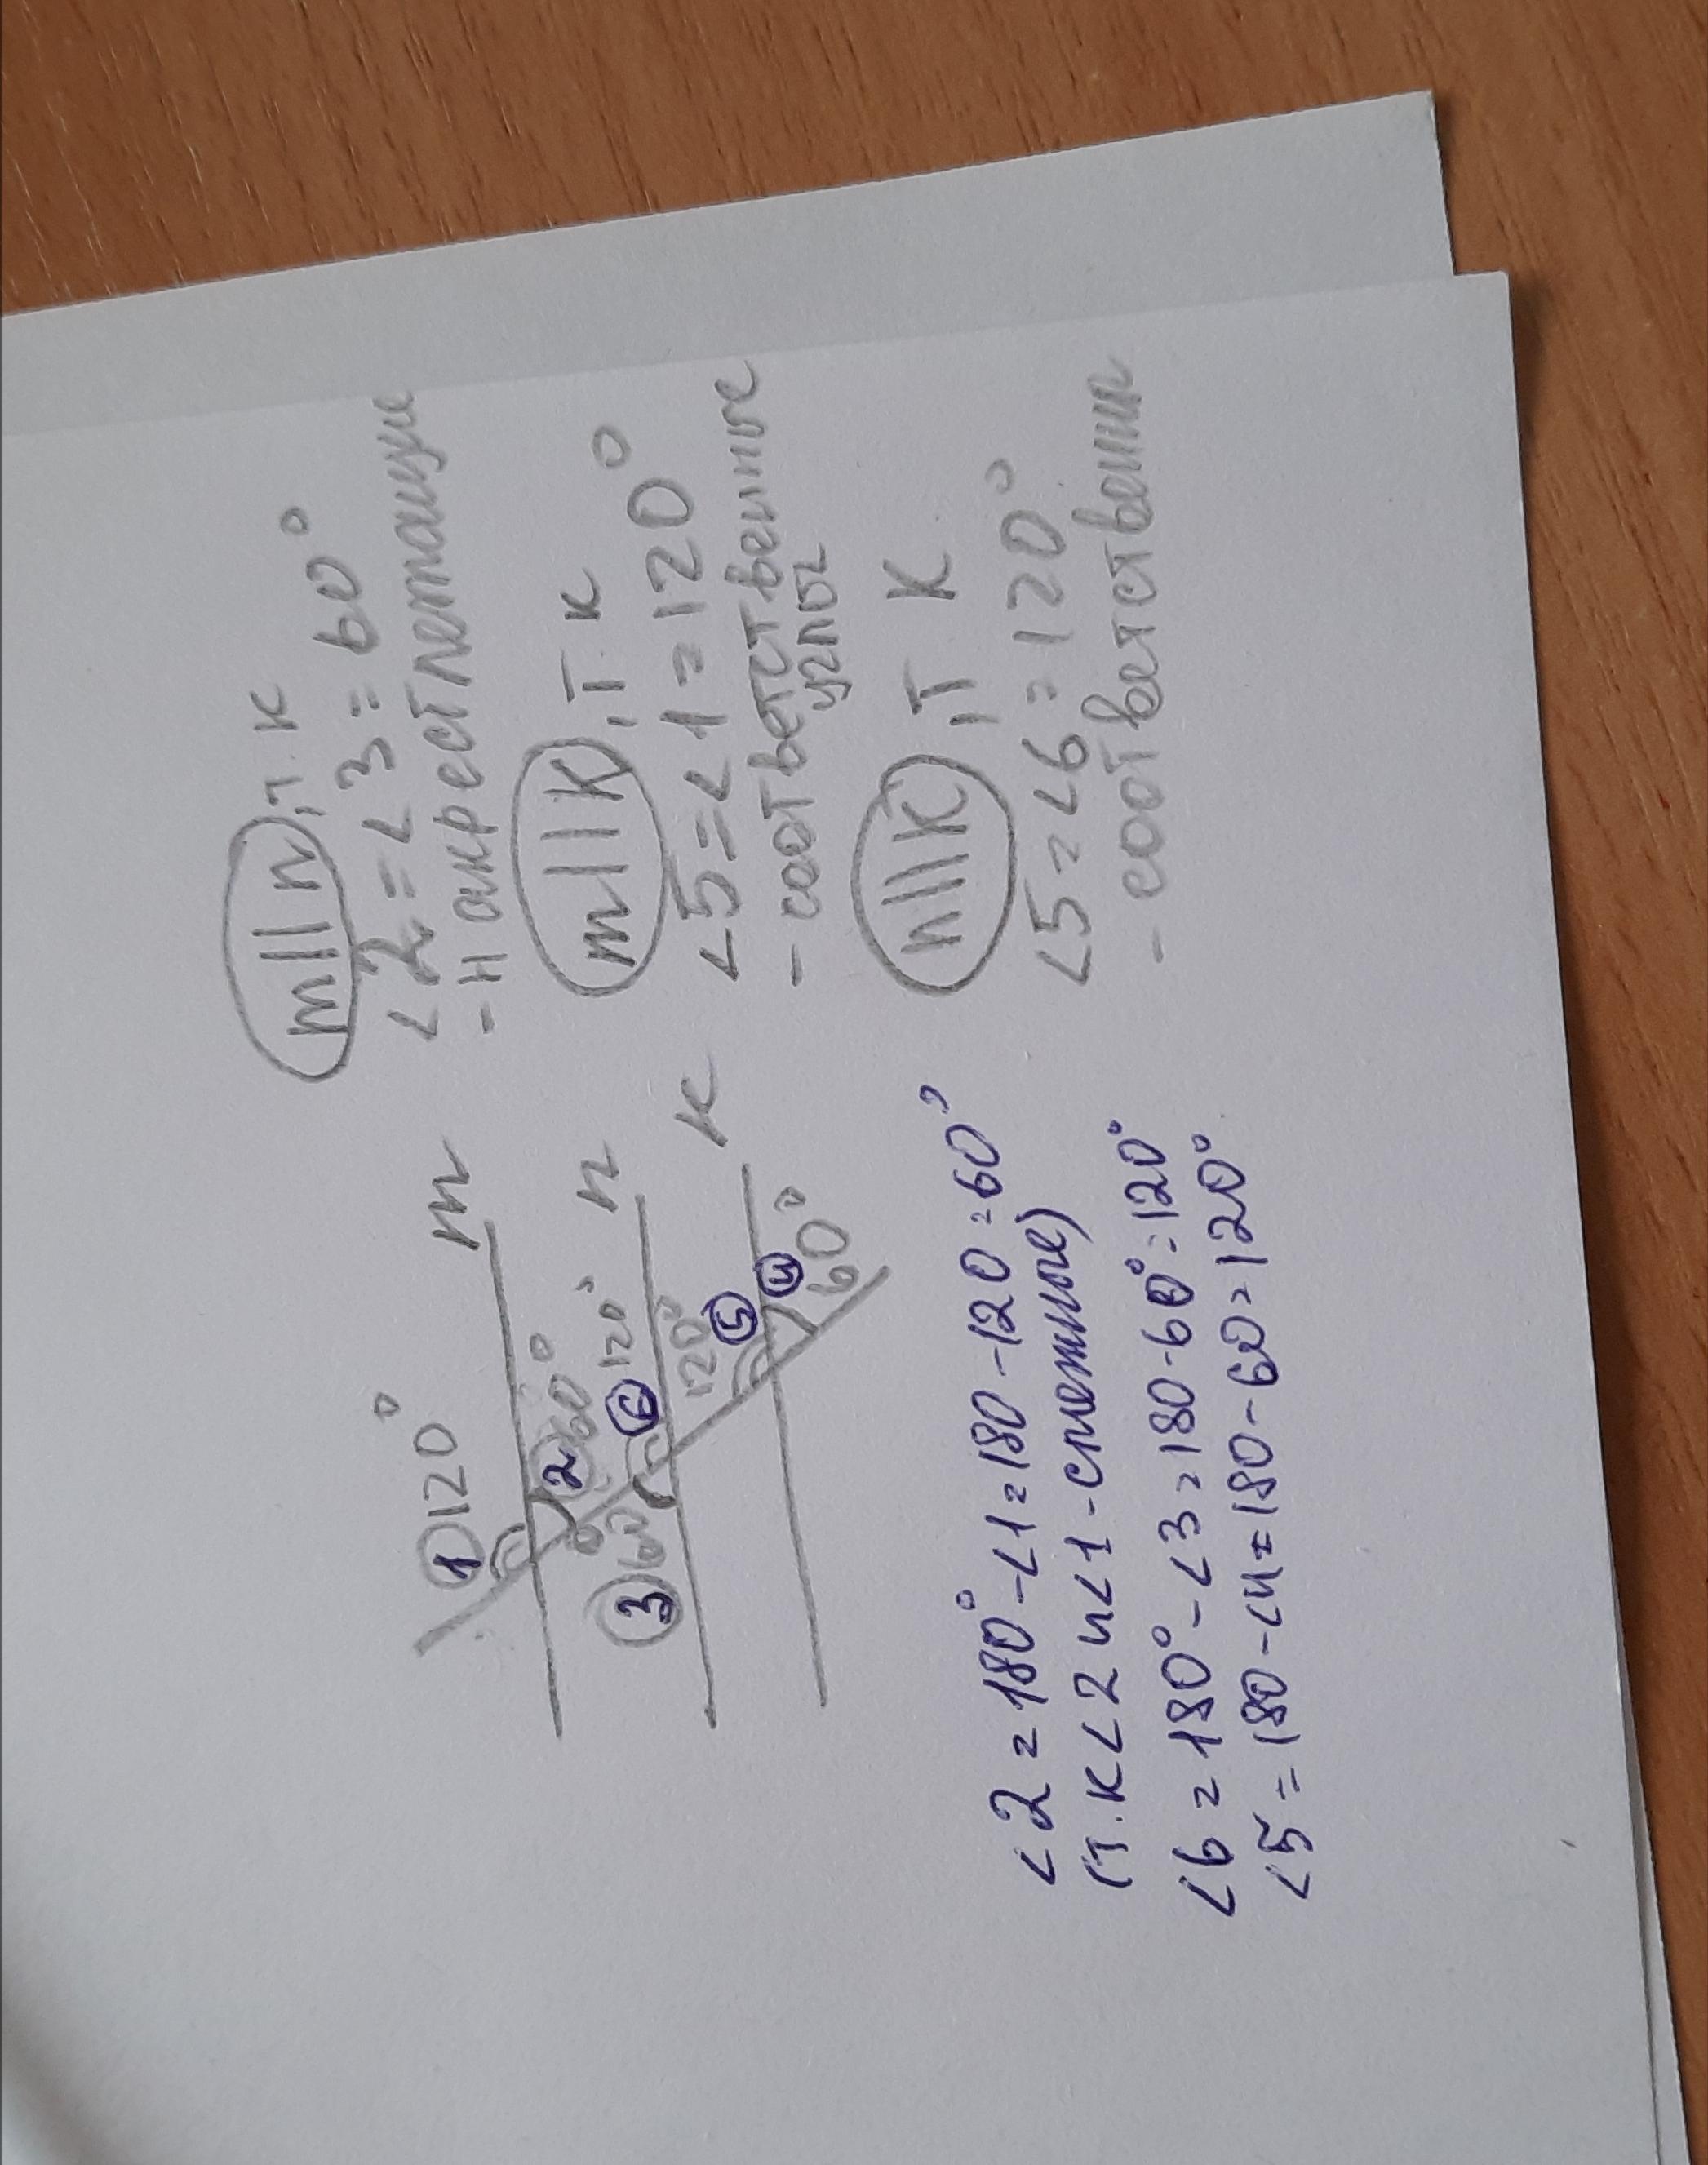 ①120°
m
②60°
③60°
⑥120°
n
120°
⑤
к
④
60°
m||n, т.к
∠2=∠3=60°
- накрестлежащие
m||К, т.к
∠5=∠1=120°
- соответственные
углы
n||К, т К
∠5=∠6=120°
- соответственн
∠2=180°-∠1=180-120=60°
(т.к∠2и∠1-смежные)
∠6=180°-∠3=180-60°=120°
∠5=180-∠4=180-60=120°